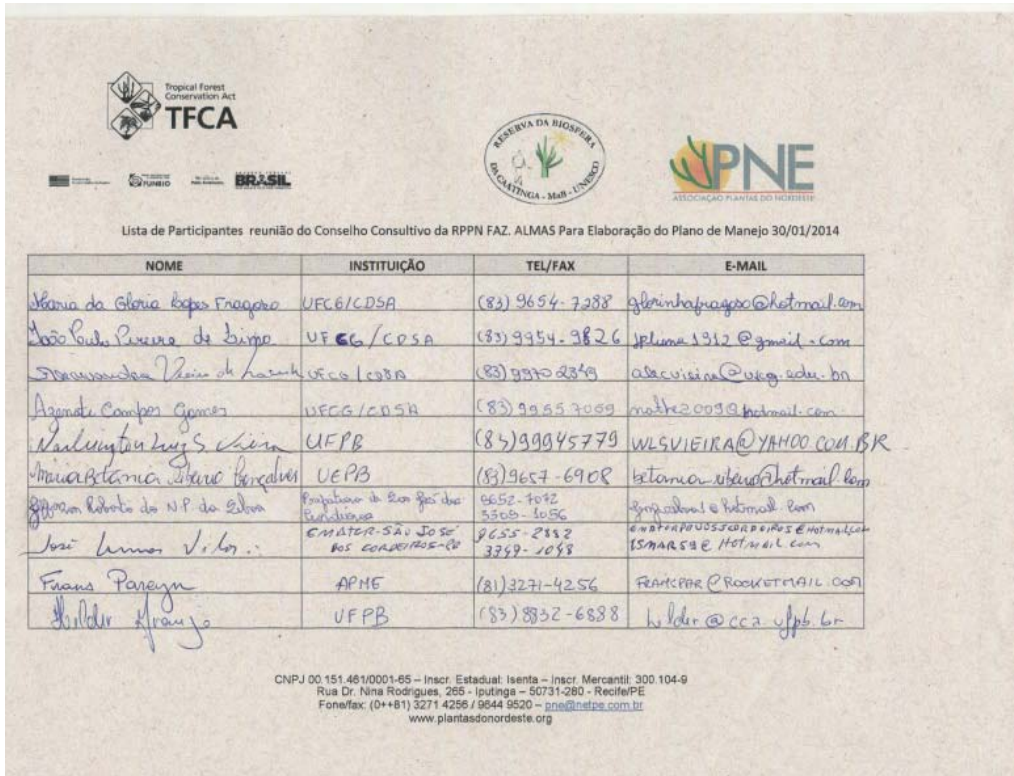 Tropical Forest
Conservation Act
TFCA
FUNBIO
BRASIL
RESERVA DA BIOSFERA
DA CAATINGA - MaB - UNESCO
PNE
ASSOCIAÇÃO PLANTAS DO NORDESTE
Lista de Participantes reunião do Conselho Consultivo da RPPN FAZ. ALMAS Para Elaboração do Plano de Manejo 30/01/2014
NOME INSTITUIÇÃO TEL/FAX E-MAIL
Maria da Gloria Lopes Fragoso UFCG/CDSA (83) 9654-7288 glorinhafragoso@hotmail.com
João Paulo Pereira de UFCG/CDSA (83) 9954-9826 jplima1912@gmail.com
Vieira de UFCG/CDSA (83) 99702349
Azenate Campos Gomes UFCG/CDSA (83) 99557059
Washington Luiz S Vieira UFPB (83) 99945779 WLSVIEIRA@YAHOO.COM.BR
Maria Betania Ribeiro Gonçalves UEPB (83) 9657-6908 betania.ribeiro@hotmail.com
Roberto do N.P. da Silva Prefeitura de São José dos 9652-7072
Cordeiros 3303-1056
José EMATER-SÃO JOSÉ 9655-2882
DOS CORDEIROS-PB 3349-1048 ISMAR59@Hotmail.com
Frans Pareyn APNE (81) 3271-4256 FRANSPAR@ROCKETMAIL.COM
Helder Araujo UFPB (83) 8832-6888 helder@cca.ufpb.br
CNPJ 00.151.461/0001-65 – Inscr. Estadual: Isenta – Inscr. Mercantil: 300.104-9
Rua Dr. Nina Rodrigues, 265 - Iputinga – 50731-280 - Recife/PE
Fone/fax: (0++81) 3271 4256 / 9644 9520 – pne@netpe.com.br
www.plantasdonordeste.org